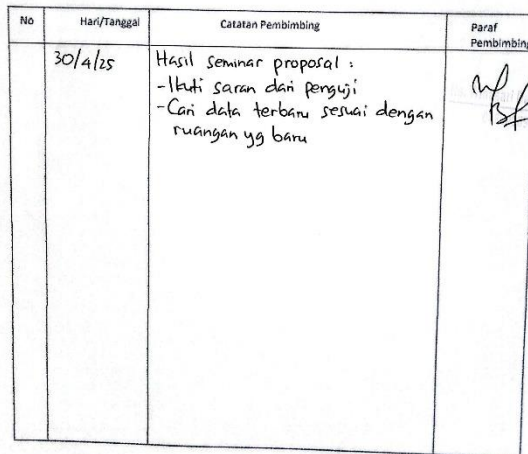 No Hari/Tanggal Catatan Pembimbing Paraf
Pembimbing
30/4/25 Hasil seminar proposal :
- Ikuti saran dari penguji
- Cari data terbaru sesuai dengan
ruangan yg baru